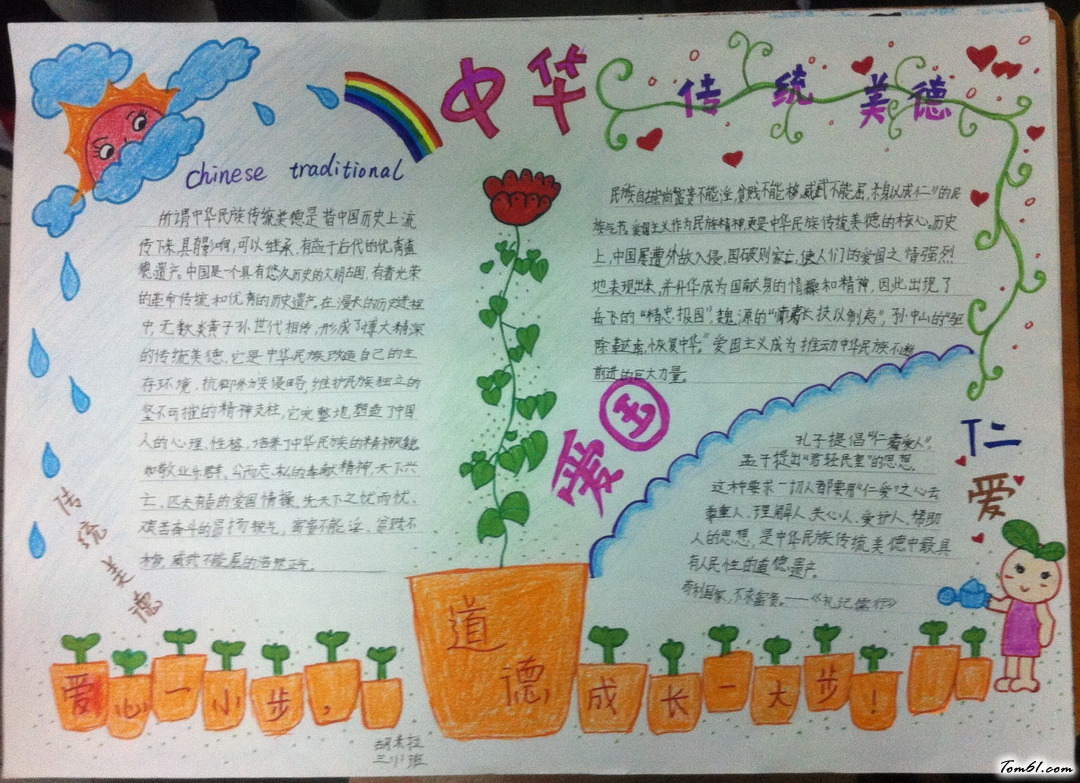 中华
传统美德
chinese traditional
所谓中华民族传统美德是指中国历史上流
传下来,具有影响,可以继承,有益于后代的优秀道
德遗产。中国是一个具有悠久历史的文明古国,有着光荣
的革命传统和优秀的历史遗产。在漫长的历史进程
中,无数炎黄子孙世代相传,形成了博大精深
的传统美德,它是中华民族改造自己的生
存环境,抗御外族侵略,维护民族独立的
坚不可摧的精神支柱,它完整地塑造了中国
人的心理、性格,培养了中华民族的精神风貌
如敬业乐群、公而忘私的奉献精神,天下兴
亡、匹夫有责的爱国情操,先天下之忧而忧、
艰苦奋斗的昂扬锐气,富贵不能淫、贫贱不
移,威武不能屈的浩然正气。
民族自古崇尚富贵不能淫,贫贱不能移,威武不能屈,杀身以成仁”的民
族气节,爱国主义作为民族精神更是中华民族传统美德的核心。历史
上,中国屡遭外敌入侵,国破则家亡,使人们的爱国之情强烈
地表现出来,并升华成为国献身的情操和精神,因此出现了
岳飞的“精忠报国”,魏源的“师夷长技以制夷”,孙中山的“驱
除鞑虏,恢复中华。”爱国主义成为推动中华民族不断
前进的巨大力量。
爱国
仁爱
孔子提倡“仁者爱人”,
孟子提出“君轻民重”的思想。
这种要求一切人都要用“仁爱”之心去
尊重人、理解人、关心人、爱护人、帮助
人的思想,是中华民族传统美德中最具
有人民性的道德遗产。
苟利国家,不求富贵。——《礼记儒行》
传统美德
道德
爱心一小步,成长一大步!
班
Tom61.com